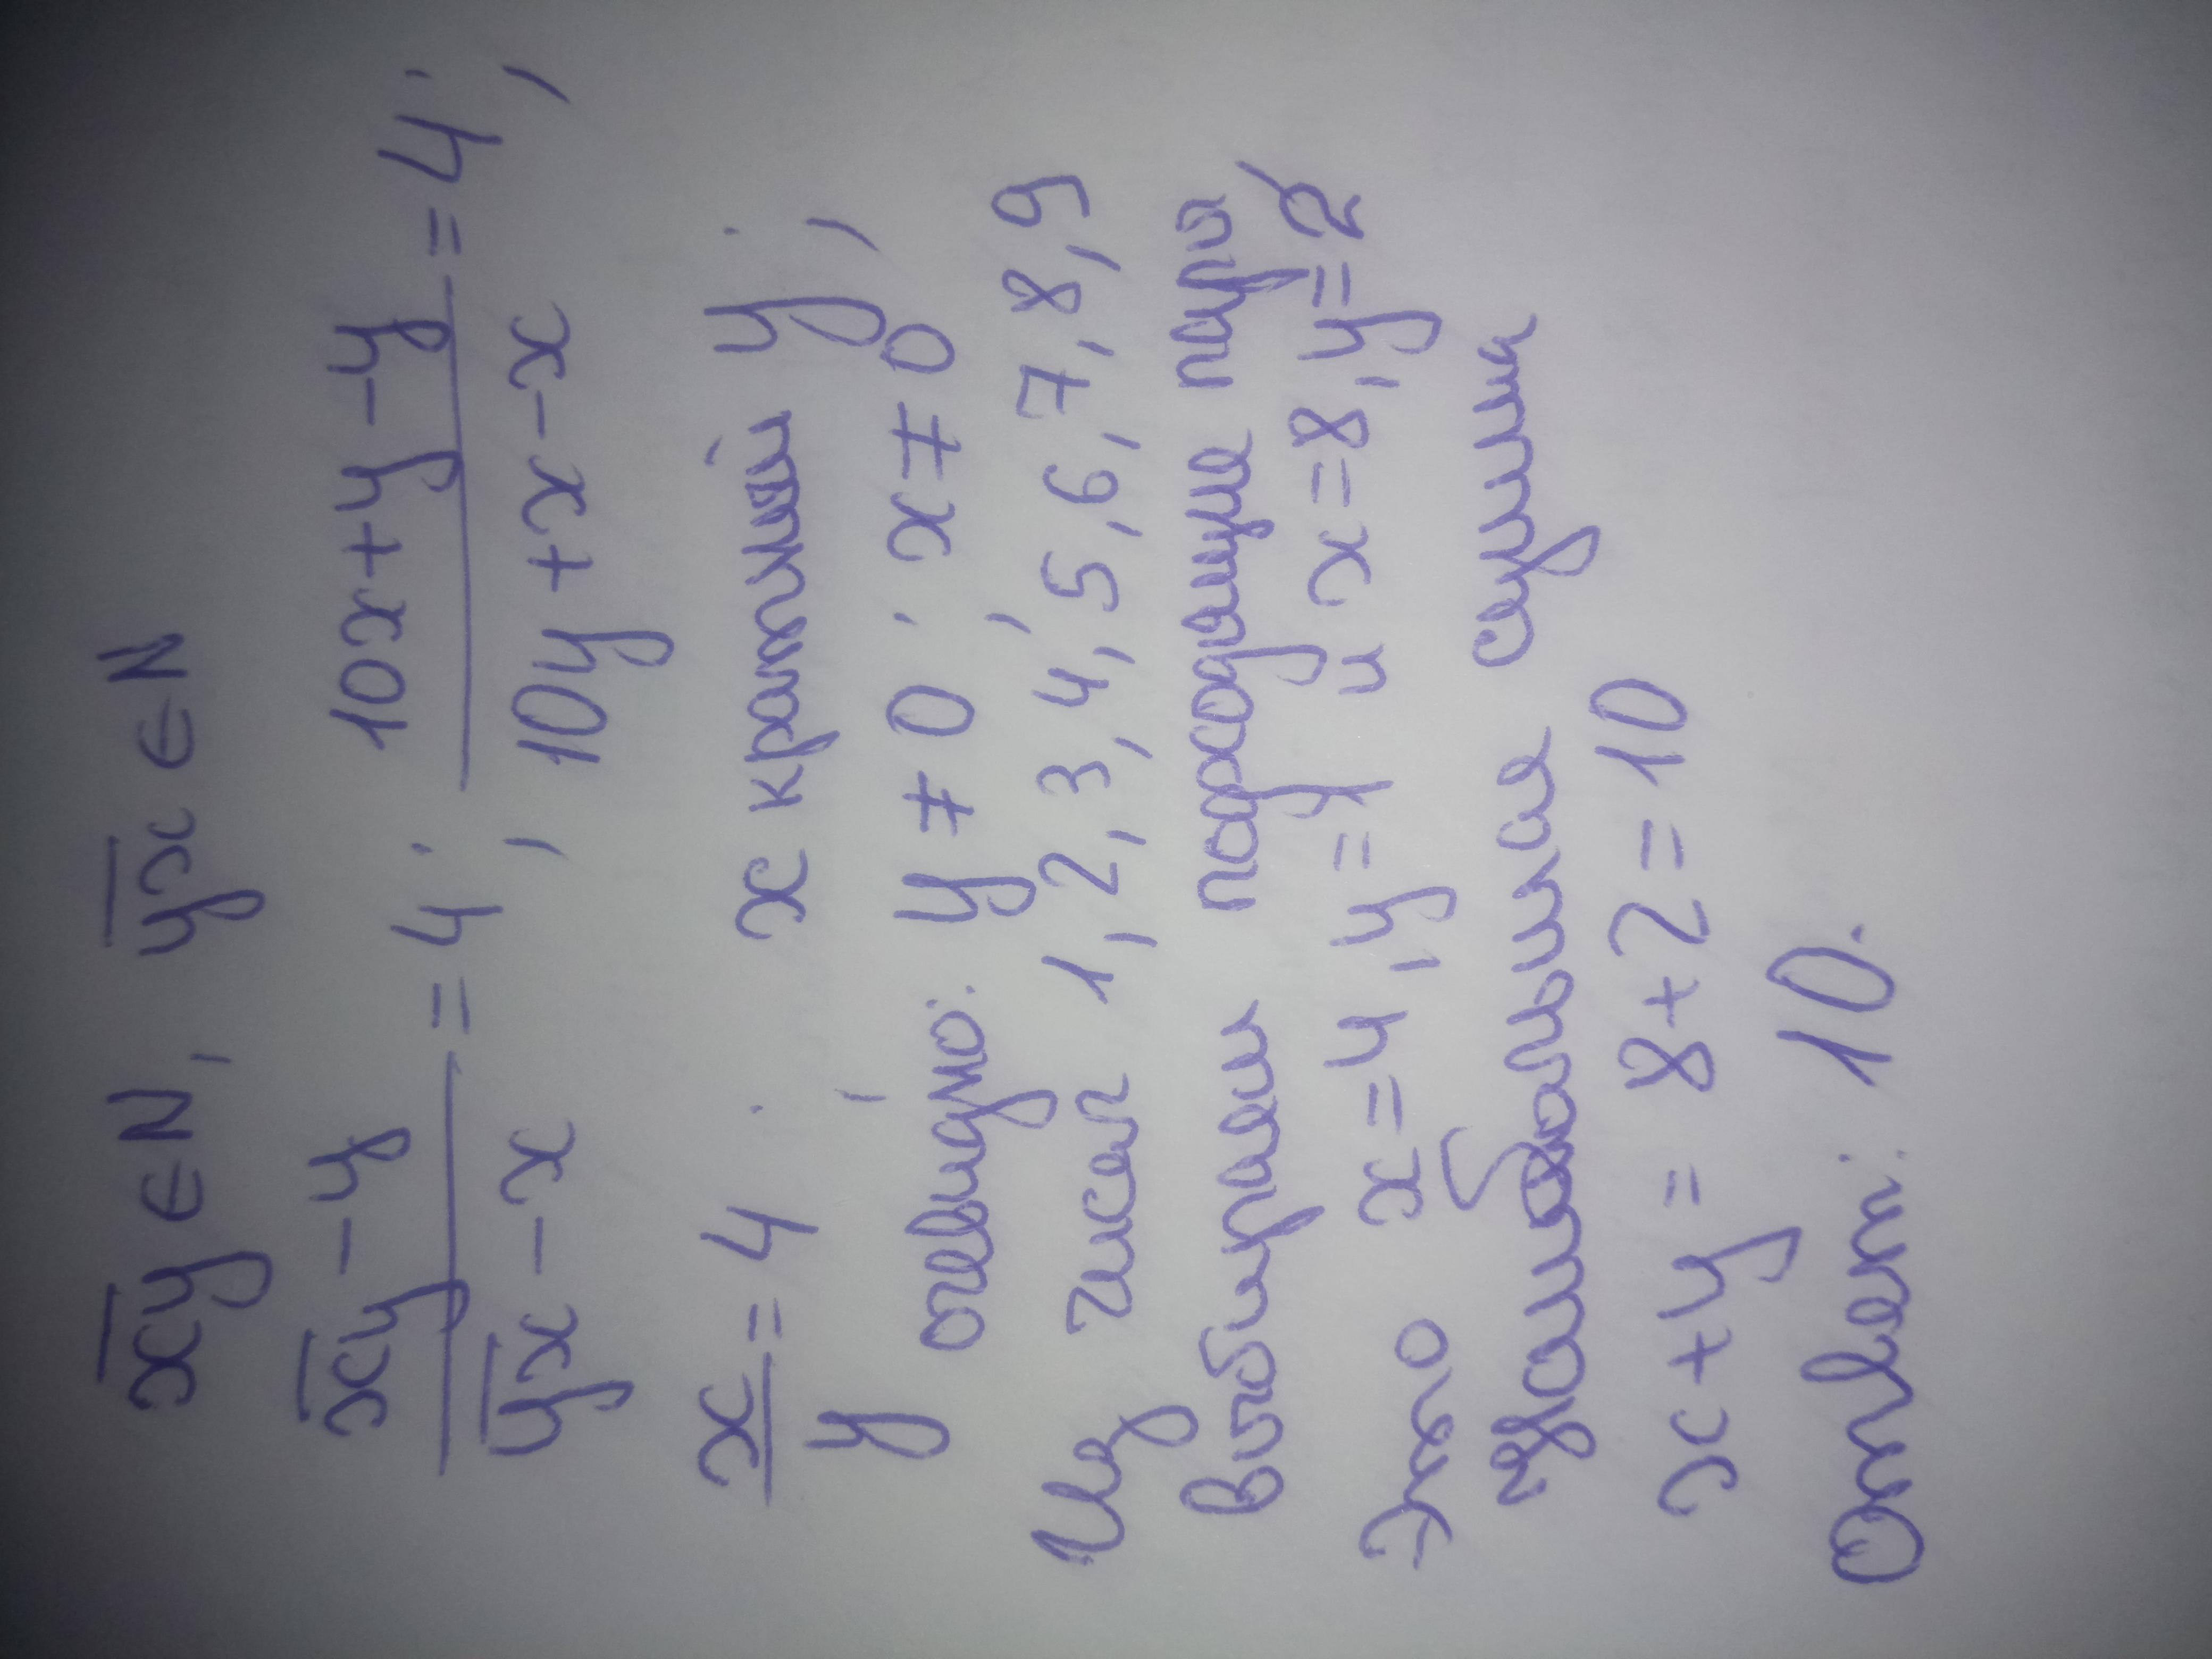 x̅y̅ ∈ N, y̅x̅ ∈ N
(x̅y̅ - y)/(y̅x̅ - x) = 4; (10x+y-y)/(10y+x-x) = 4;
x/y = 4; x кратный y;
очевидно: y ≠ 0; x ≠ 0
Из чисел 1, 2, 3, 4, 5, 6, 7, 8, 9
выбираем подходящие пары
это x=4, y=1 и x=8, y=2
наибольшая сумма
x+y = 8+2=10
Ответ: 10.